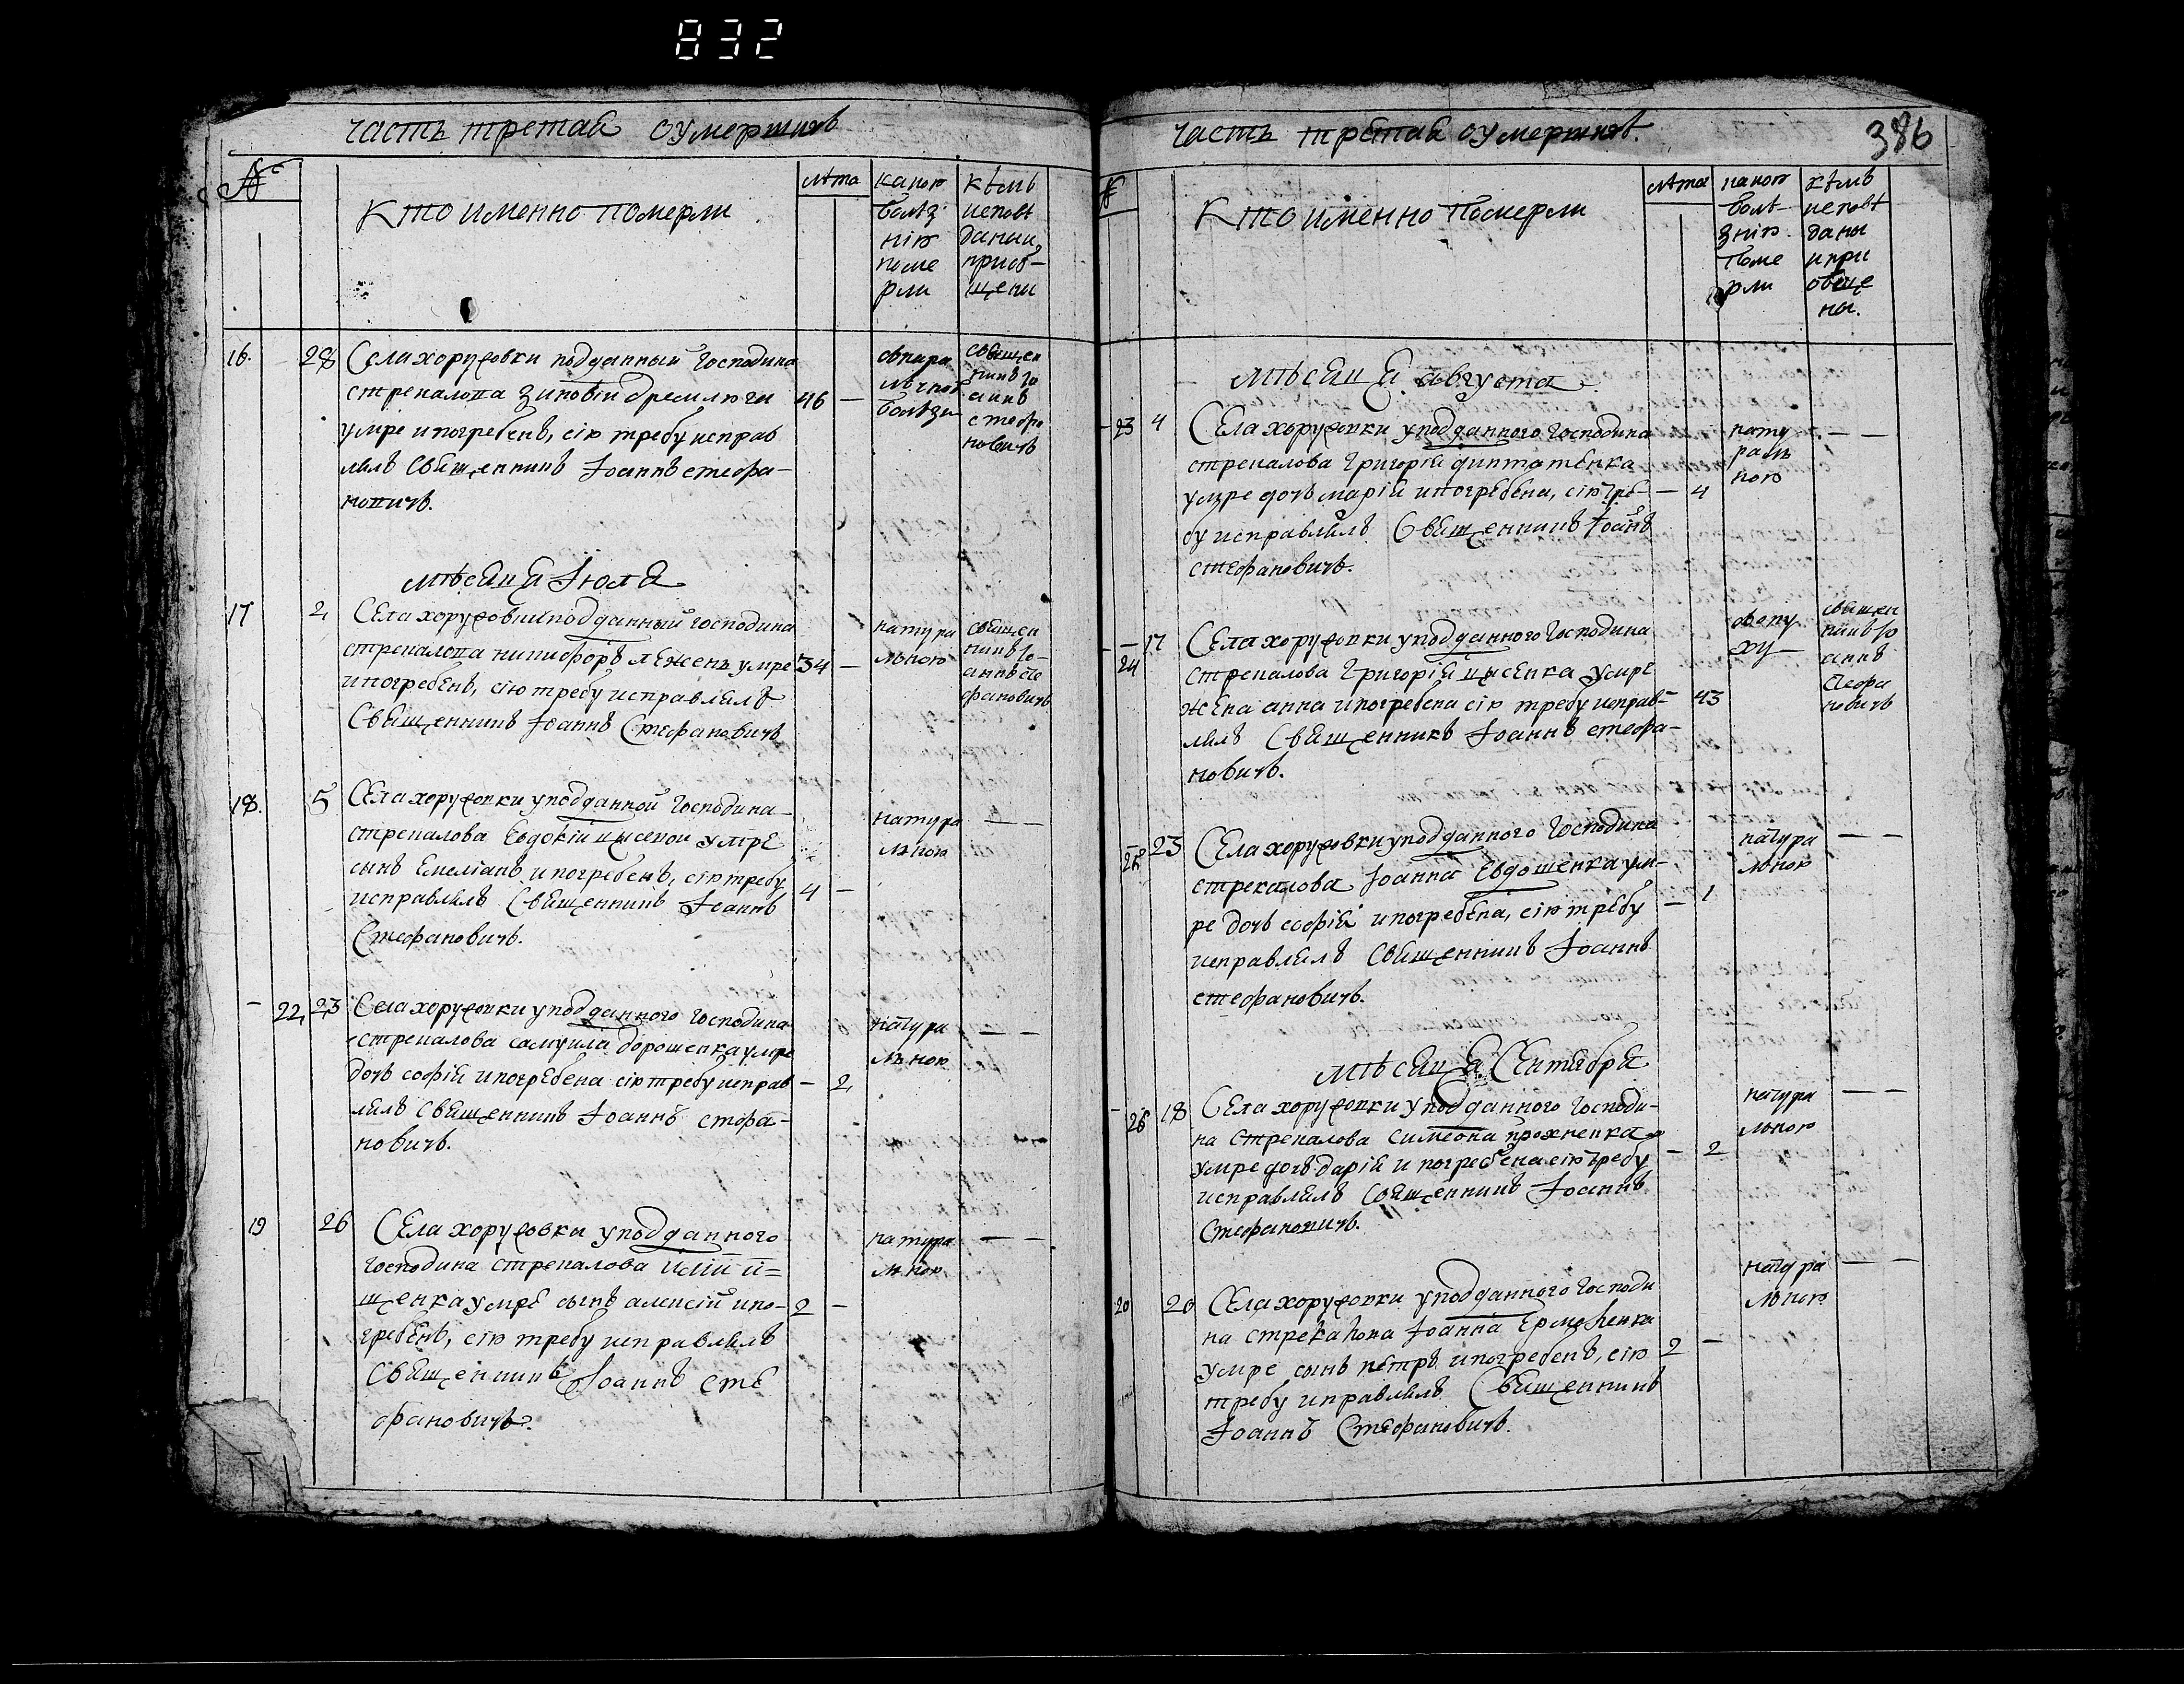 832
часть третая оумершихъ
№
Кто именно померли
лѣта
какою
болѣз
нію
поме
рли
кѣмъ
исповѣ
даны и
приоб-
щены
16. 28 Села хоружовки подданный господина
стрекалова Зиновій дремлюги 46 —
умре и погребенъ, сію требу исправ
лялъ Священникъ Іоаннъ стефа-
новичъ.
болѣзн
Священ
никъ Іо
аннъ
стефа
новичъ
мѣсяца Іюля
17 2 Села хоружовки подданный господина
стрекалова никифоръ лежень умре 34 —
и погребенъ, сію требу исправлялъ
Священникъ Іоаннъ Стефановичъ
натура
льною
священ
никъ Іо-
аннъ сте
фановичъ
18. 5 Села хоружовки у подданной господина
стрекалова Евдокіи цысевой умре
сынъ Емеліанъ и погребенъ, сію требу 4 —
исправлялъ Священникъ Іоаннъ
Стефановичъ.
натура — —
льною
— 22, 23 Села хоружовки у подданного господина
стрекалова самуила дорошенка умре
дочь софія и погребена сію требу исправ — 2,
лялъ Священникъ Іоаннъ стефа-
новичъ.
натура — —
льною
19 26 Села хоружовки у подданного
господина стрекалова иліи и=
щенка умре сынъ алексій и по- 2 —
гребенъ, сію требу исправлялъ
Священникъ Іоаннъ сте
фановичъ.
натура — —
льною
часть третая оумершихъ. 386
№
Кто именно померли
лѣта
какою
болѣ-
знію
поме
рли
кѣмъ
исповѣ
даны
и при
обще
ны.
мѣсяца августа
23 4 Села хоружовки у подданного господина
стрекалова григорія
умре дочь марія и погребена, сію тре- — 4
бу исправлялъ Священникъ Іоаннъ
стефановичъ.
нату — —
раль
ною
24 17 Села хоружовки у подданного господина
стрекалова григорія цысенка умре
жена анна и погребена сію требу исправ- 43
лялъ Священникъ Іоаннъ стефа-
новичъ.
священ
никъ Іо
аннъ
Стефа
новичъ
25 23 Села хоружовки у подданного господина
стрекалова Іоанна Евдошенка ум-
ре дочь софія и погребена, сію требу — 1
исправлялъ Священникъ Іоаннъ
стефановичъ.
натура — —
льною
мѣсяца Сентября
26 18 Села хоружовки у подданного господи-
на стрекалова симеона прохненка
умре дочь дарія и погребена сію требу — 2
исправлялъ Священникъ Іоаннъ
Стефановичъ.
натура — —
льною
20 20 Села хоружовки у подданного господи
на стрекалова Іоанна Ермоленка
умре сынъ петръ и погребенъ, сію 2 —
требу иправлялъ Священникъ
Іоаннъ Стефановичъ.
натура — —
льною